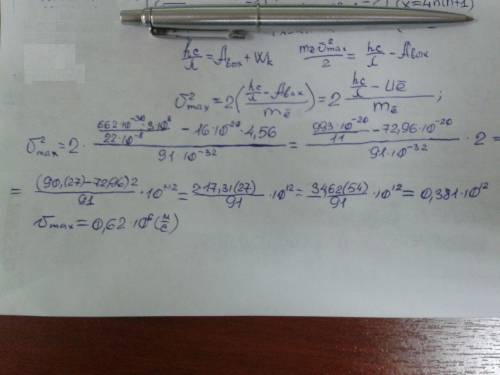 (x=4n(n+1)
hc/λ = Aвых + Wk   mēυ²max/2 = hc/λ − Aвых
υ²max = 2((hc/λ − Aвых)/mē) = 2 (hc/λ − Uē)/mē ;
υ²max = 2 · (662·10⁻³⁶·3·10⁸/22·10⁻⁸ − 16·10⁻²⁰·4,56)/91·10⁻³² = (993·10⁻²⁰/11 − 72,96·10⁻²⁰)/91·10⁻³² · 2 =
= (90,(27)−72,96)2/91 · 10⁺¹² = 2·17,31(27)/91 · 10¹² = 3462(54)/91 · 10¹² = 0,381·10¹²
υmax = 0,62·10⁶ (м/с)